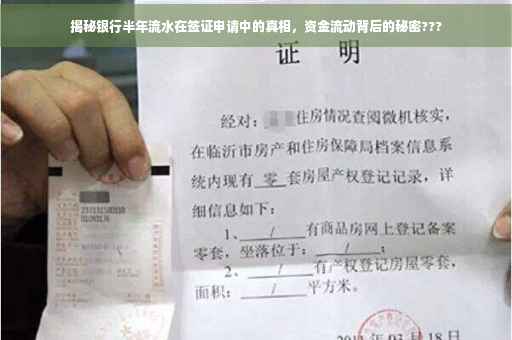 揭秘银行半年流水在签证申请中的真相，资金流动背后的秘密???
证 明
经对： 住房情况查阅微机核实，
在临沂市房产和住房保障局档案信息系
统内现有 零 套房屋产权登记记录，详
细信息如下：
1、 / 有商品房网上登记备案
零套，坐落位于： / ；
2、 / 有产权登记房屋零套，
面积： / 平方米。